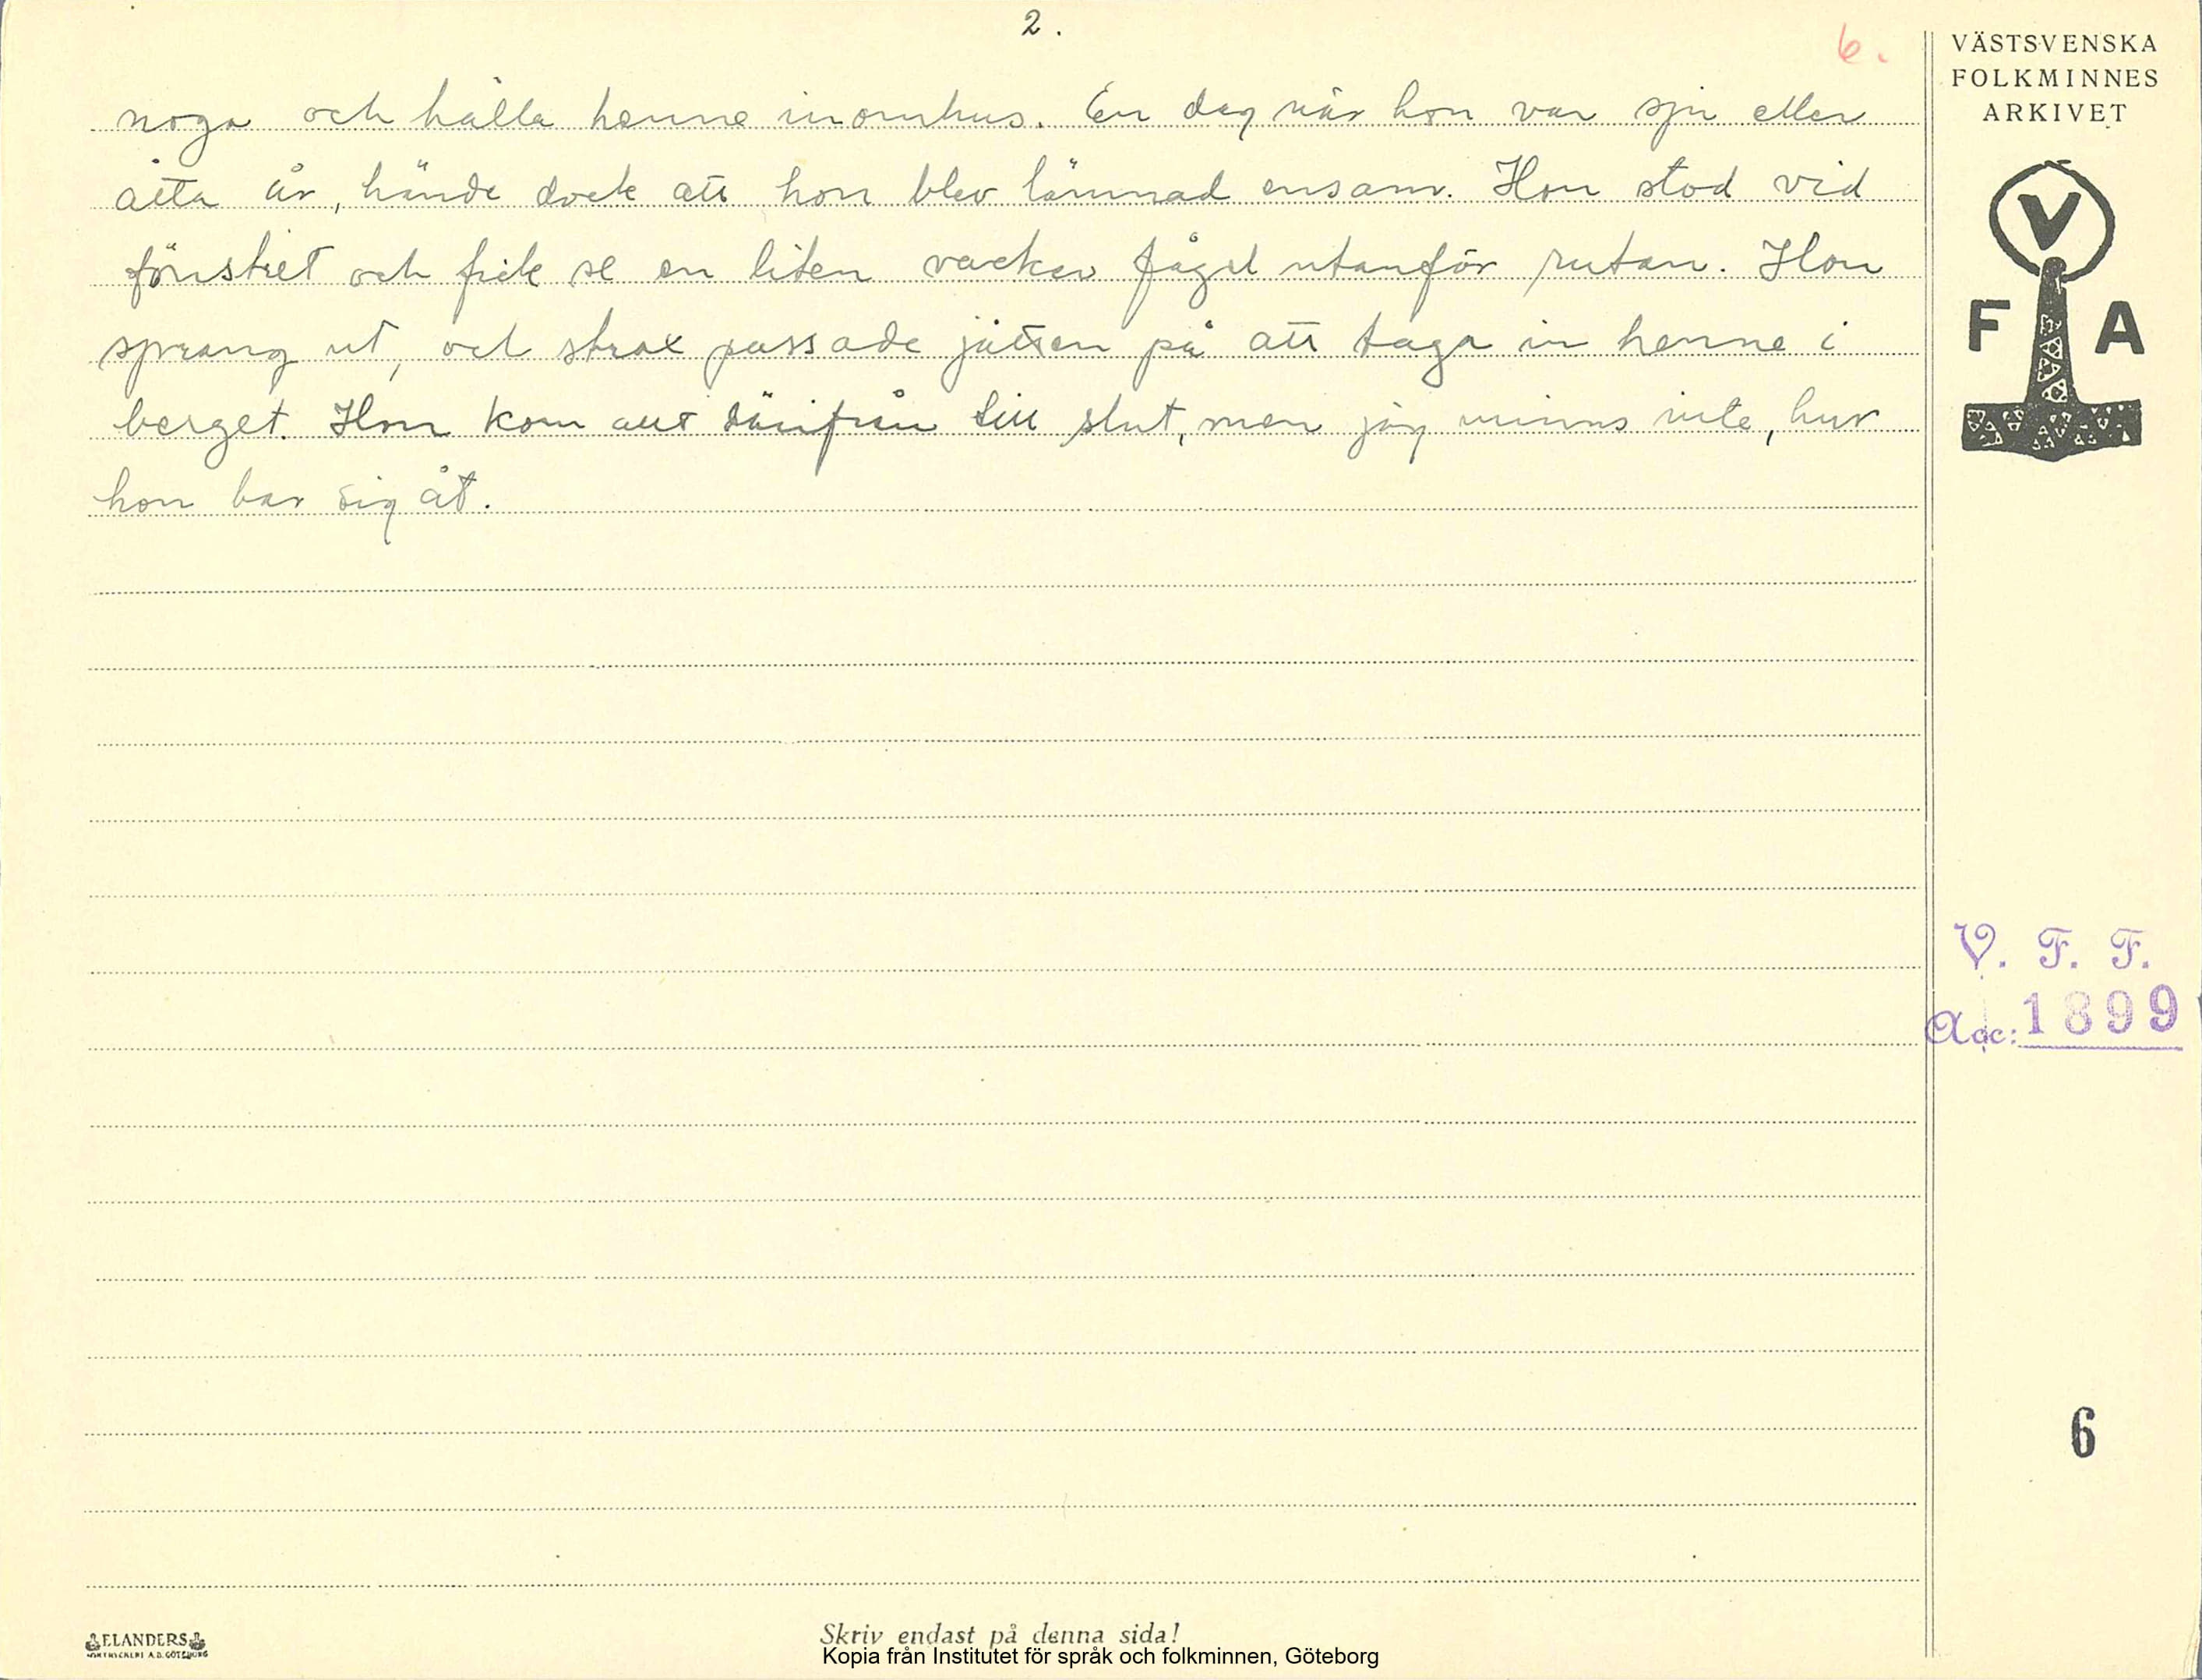 2.
6.
noga och hålla henne inomhus. En dag när hon var sju eller
åtta år, hände dock att hon blev lämnad ensam. Hon stod vid
fönstret och fick se en liten vacker fågel utanför rutan. Hon
sprang ut, och strax passade jätten på att taga in henne i
berget. Hon kom allt därifrån till slut, men jag minns inte, hur
hon bar sig åt.
VÄSTSVENSKA
FOLKMINNES
ARKIVET
V
F A
V. F. F.
Acc: 1899
6
ELANDERS
BOKTRYCKERI A.B. GÖTEBORG
Skriv endast på denna sida!
Kopia från Institutet för språk och folkminnen, Göteborg